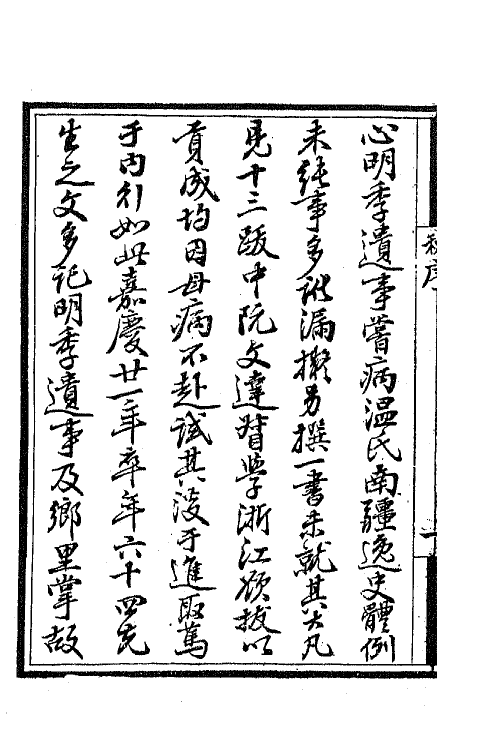 心明季遺事嘗病温氏南疆逸史體例
未純事多訛漏擬另撰一書未就其大凡
見十三跋中阮文達督學浙江欲拔以
貢成均因母病不赴試其淡于進取篤
于内行如此嘉慶廿一年卒年六十四先
生之文多記明季遺事及鄉里掌故